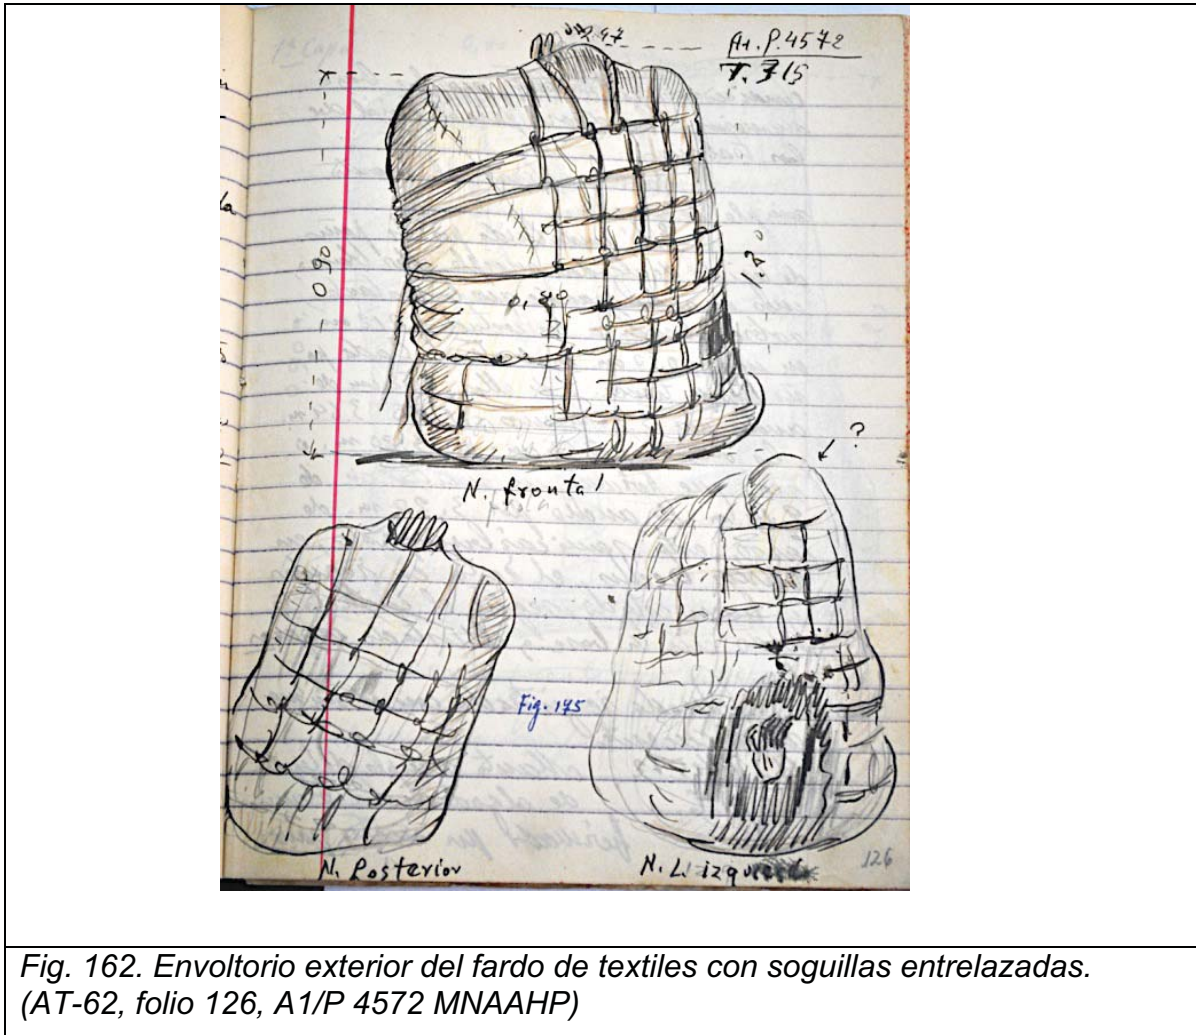 A1. P. 4572
T. 315
0 90
1.20
0,40
?
N. frontal
Fig. 175
N. Posterior
N. L. izquierdo
126
Fig. 162. Envoltorio exterior del fardo de textiles con soguillas entrelazadas.
(AT-62, folio 126, A1/P 4572 MNAAHP)